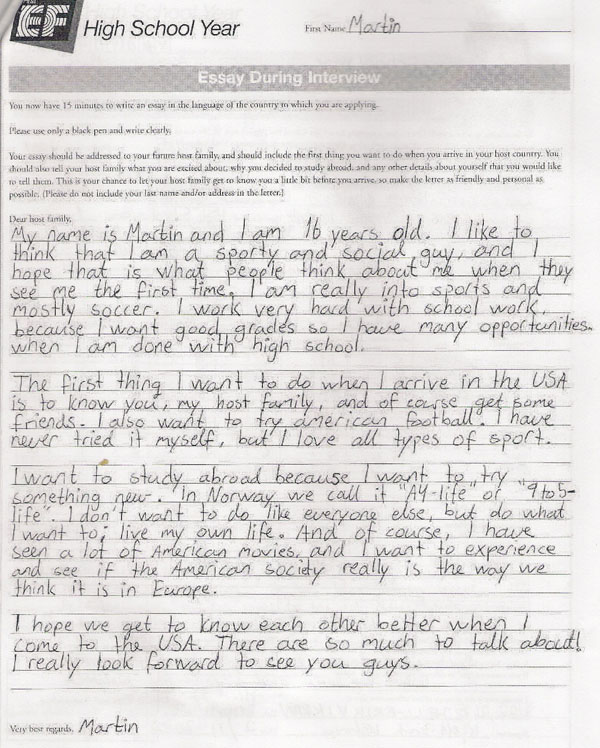 EF
High School Year
First Name Martin
Essay During Interview
You now have 15 minutes to write an essay in the language of the country to which you are applying.
Please use only a black pen and write clearly.
Your essay should be addressed to your future host family, and should include the first thing you want to do when you arrive in your host country. You
should also tell your host family what you are excited about, why you decided to study abroad, and any other details about yourself that you would like
to tell them. This is your chance to let your host family get to know you a little bit before you arrive, so make the letter as friendly and personal as
possible. [Please do not include your last name and/or address in the letter.]
Dear host family,
My name is Martin and I am 16 years old. I like to
think that I am a sporty and social guy, and I
hope that is what people think about me when they
see me the first time. I am really into sports and
mostly soccer. I work very hard with school work,
because I want good grades so I have many opportunities
when I am done with high school.
The first thing I want to do when I arrive in the USA
is to know you, my host family, and of course get some
friends. I also want to try american football. I have
never tried it myself, but I love all types of sport.
I want to study abroad because I want to try
something new. In Norway we call it "A4-life" or "9 to 5-
life". I don't want to do like everyone else, but do what
I want to; live my own life. And of course, I have
seen a lot of American movies, and I want to experience
and see if the American society really is the way we
think it is in Europe.
I hope we get to know each other better when I
come to the USA. There are so much to talk about!
I really look forward to see you guys.
Very best regards, Martin